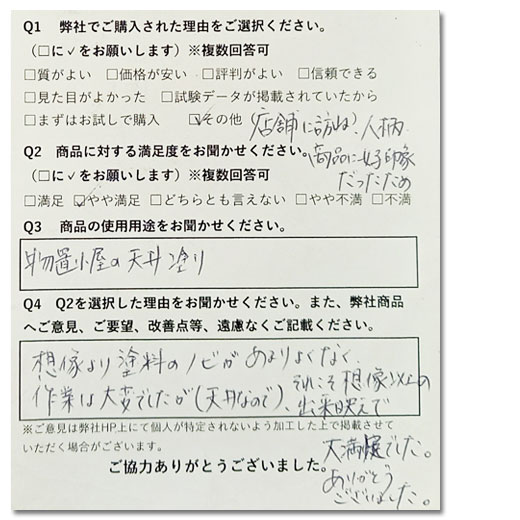 Q1 弊社でご購入された理由をご選択ください。
(□に✓をお願いします)※複数回答可
□質がよい □価格が安い □評判がよい □信頼できる
□見た目がよかった □試験データが掲載されていたから
□まずはお試しで購入 ☑その他 (店舗に訪ね、人柄、
商品に好印象
だったため
Q2 商品に対する満足度をお聞かせください。
(□に✓をお願いします)※複数回答可
□満足 ☑やや満足 □どちらとも言えない □やや不満 □不満
Q3 商品の使用用途をお聞かせください。
物置小屋の天井塗り
Q4 Q2を選択した理由をお聞かせください。また、弊社商品
へご意見、ご要望、改善点等、遠慮なくご記載ください。
想像より塗料のノビがあまりよくなく、
作業は大変でしたが(天井なので)、それこそ想像以上の
出来映えで
大満足でした。
ありがとう
ございました。
※ご意見は弊社HP上にて個人が特定されないよう加工した上で掲載させて
いただく場合がございます。
ご協力ありがとうございました。